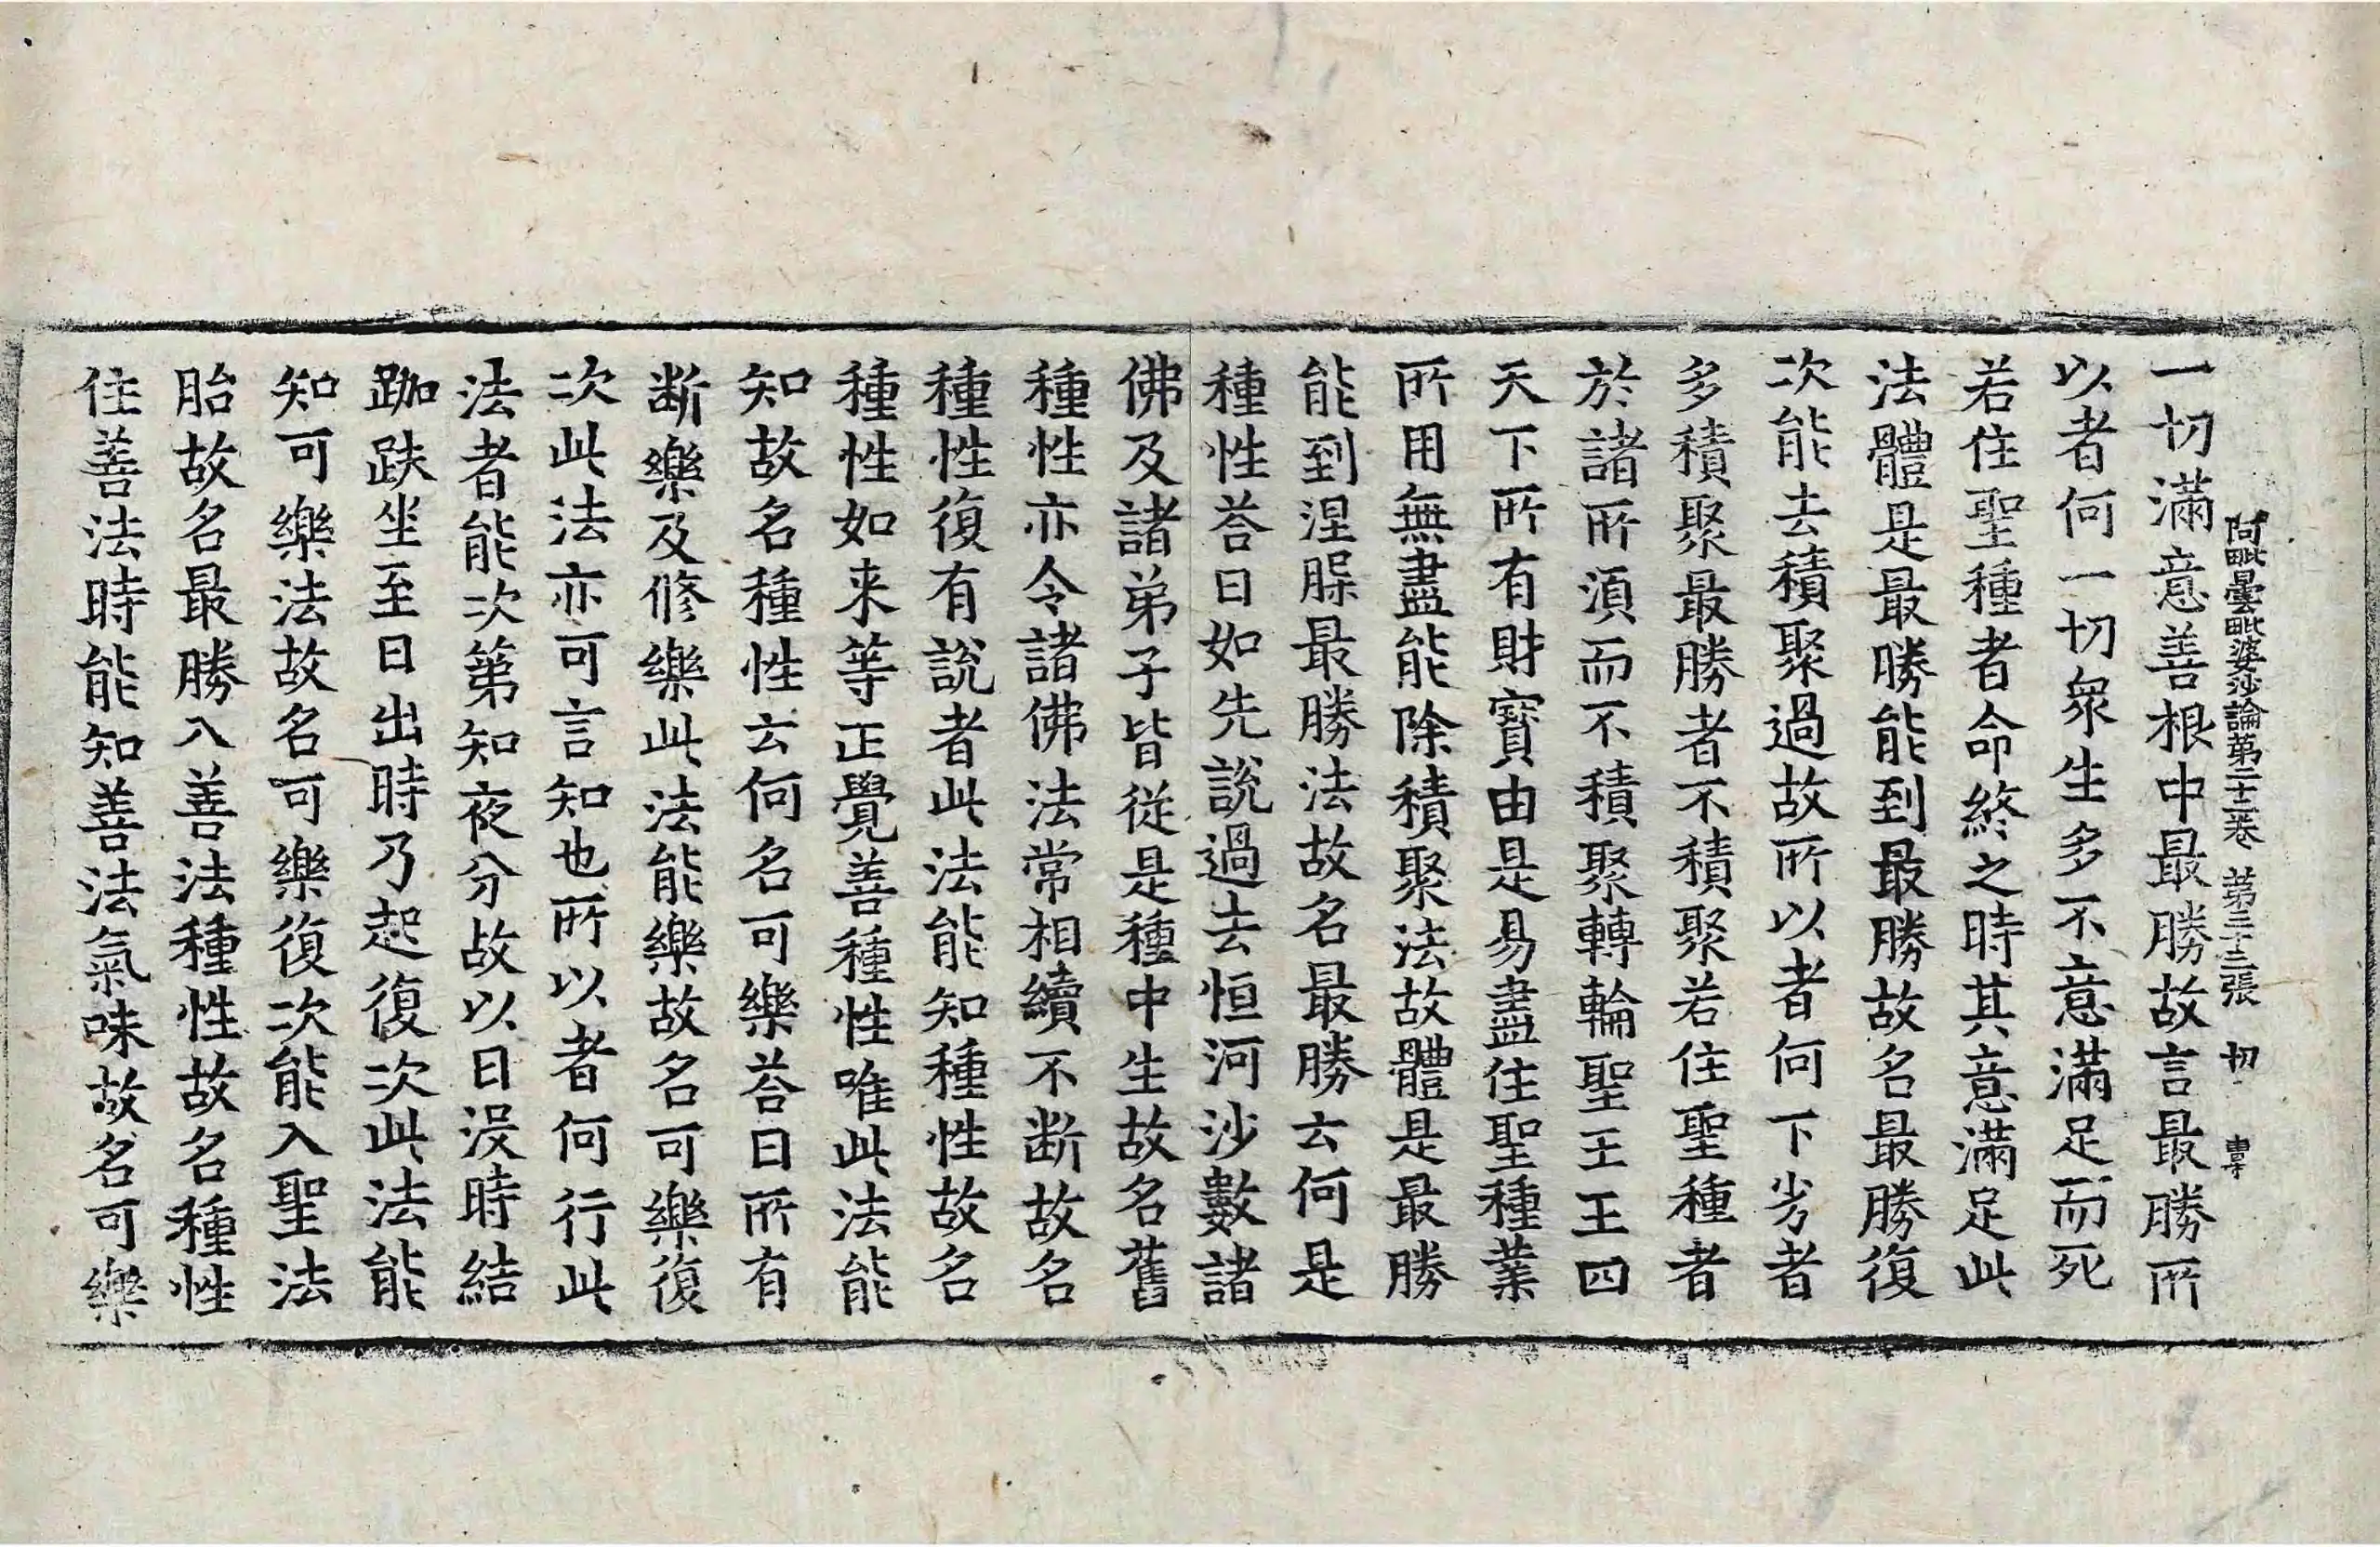 阿毗曇毗婆沙論第二十三卷 第三十三張 切
一切滿意善根中最勝故言最勝所
以者何一切衆生多不意滿足而死
若住聖種者命終之時其意滿足此
法體是最勝能到最勝故名最勝復
次能去積聚過故所以者何下劣者
多積聚最勝者不積聚若住聖種者
於諸所湏而不積聚轉輪聖王王四
天下所有財寶由是易盡住聖種業
所用無盡能除積聚法故體是最勝
能到涅槃最勝法故名最勝云何是
種性荅曰如先說過去恒河沙數諸
佛及諸弟子皆從是種中生故名舊
種性亦令諸佛法常相續不断故名
種性復有說者此法能知種性故名
種性如来等正覺善種性唯此法能
知故名種性云何名可樂荅曰所有
断樂及修樂此法能樂故名可樂復
次此法亦可言知也所以者何行此
法者能次第知夜分故以日沒時結
跏趺坐至日出時乃起復次此法能
知可樂法故名可樂復次能入聖法
胎故名最勝入善法種性故名種性
住善法時能知善法氣味故名可樂